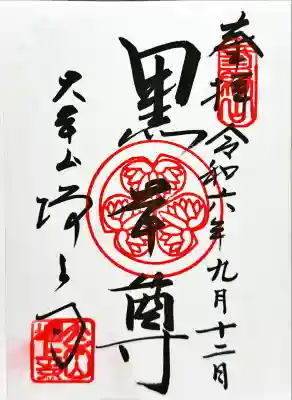 奉拝 令和六年九月十二日
黒本尊
大本山 増上寺